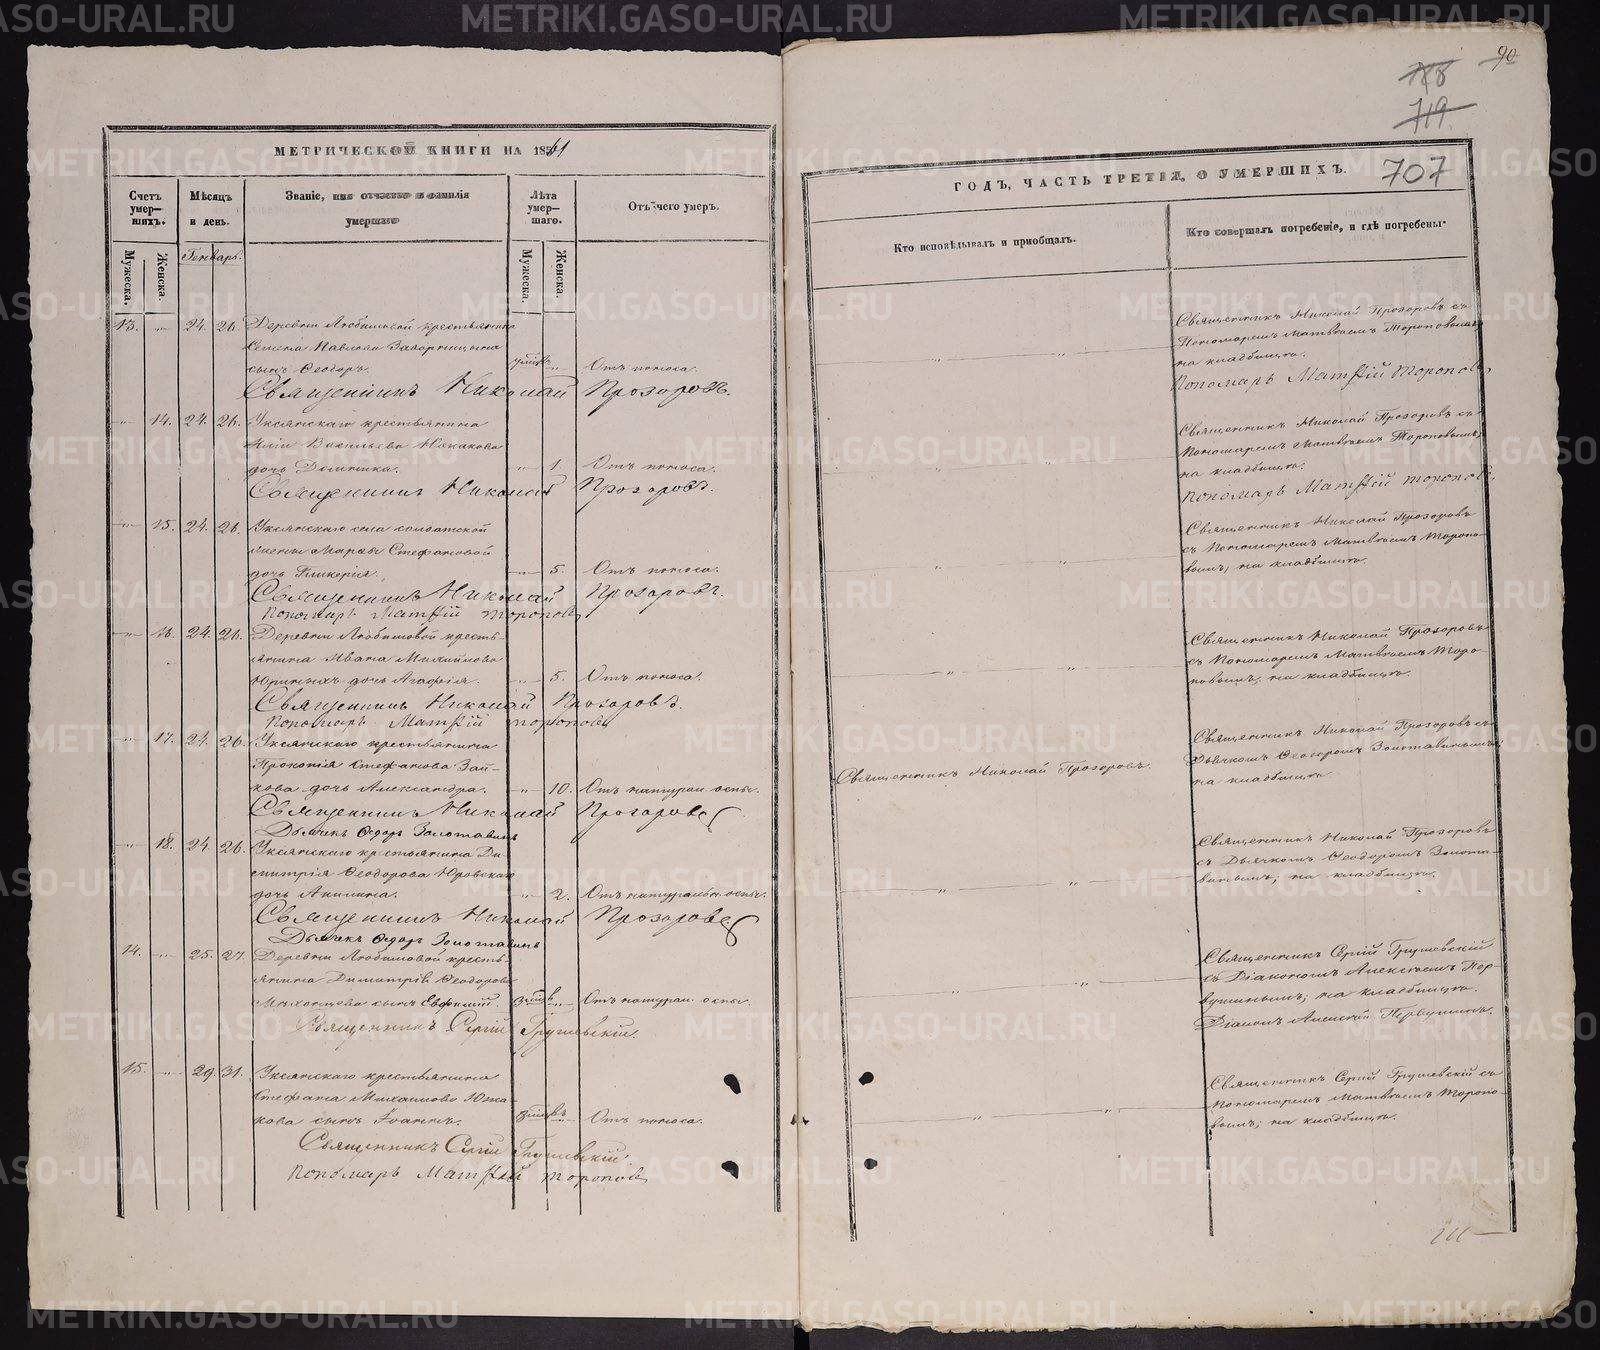 90
788
719
МЕТРИЧЕСКОЙ КНИГИ НА 1851
ГОДЪ, ЧАСТЬ ТРЕТІЯ, О УМЕРШИХЪ.
707
Счетъ умер-шихъ.
Мужеска.
Женска.
Мѣсяцъ и день.
Генварь.
Званіе, имя отчество и фамилія умершаго
Лѣта умер-шаго.
Мужеска.
Женска.
Отъ чего умеръ.
Кто исповѣдывалъ и приобщалъ.
Кто совершалъ погребеніе, и гдѣ погребены.
13. 24. 26. Деревни Любимовой крестьянина
Семена Павлова
сынъ Ѳеодоръ. Отъ поноса.
Священникъ Николай Прозоровъ.
Священникъ Николай Прозоровъ съ
Пономаремъ Матвѣемъ Тороповымъ
на кладбищѣ.
Пономарь Матѳій Тороповъ
14. 24. 26. Уксянскаго крестьянина
Васильева
дочь Домника. 1. Отъ поноса.
Священникъ Николай Прозоровъ.
Священникъ Николай Прозоровъ съ
Пономаремъ Матвѣемъ Тороповымъ,
на кладбищѣ.
Пономарь Матѳій Тороповъ.
15. 24. 26. Уксянскаго села солдатской
жены Марѳы Стефановой
дочь Гликерія. 5. Отъ поноса.
Священникъ Николай Прозоровъ.
Пономарь Матѳій Тороповъ
Священникъ Николай Прозоровъ
съ Пономаремъ Матвѣемъ Торопо-
вымъ, на кладбищѣ.
16. 24. 26. Деревни Любимовой кресть-
янина Ивана Михайлова
дочь Агафія. 5. Отъ поноса.
Священникъ Николай Прозоровъ.
Пономарь Матѳій Тороповъ
Священникъ Николай Прозоровъ
съ Пономаремъ Матвѣемъ Торо-
повымъ, на кладбищѣ.
17. 24. 26. Уксянскаго крестьянина
Прокопія Стефанова Зай-
кова дочь Александра. 10. Отъ натурал. оспы.
Священникъ Николай Прозоровъ
Дьячекъ Ѳедоръ Золотавинъ
Священникъ Николай Прозоровъ.
Священникъ Николай Прозоровъ съ
Дьячкомъ Ѳеодоромъ Золотавинымъ,
на кладбищѣ.
18. 24. 26. Уксянскаго крестьянина Ди-
митрія Ѳеодорова Юровскаго
дочь Акилина. 2. Отъ натуральн. оспы.
Священникъ Николай Прозоровъ
Дьячекъ Ѳедоръ Золотавинъ
Священникъ Николай Прозоровъ
съ Дьячкомъ Ѳеодоромъ Золота-
винымъ, на кладбищѣ.
14. 25. 27. Деревни Любимовой кресть-
янина Димитрія Ѳеодорова
сынъ Евфимій. Отъ натурал. оспы.
Священникъ Сергій Грушевскій.
Священникъ Сергій Грушевскій
съ Діакономъ Алексѣемъ Пер-
вушинымъ, на кладбищѣ.
Діаконъ Алексѣй Первушинъ.
15. 29. 31. Уксянскаго крестьянина
Стефана Михайлова Южа-
кова сынъ Іоаннъ. Отъ поноса.
Священникъ Сергій Грушевскій.
Пономарь Матѳій Тороповъ
Священникъ Сергій Грушевскій съ
Пономаремъ Матвѣемъ Торопо-
вымъ, на кладбищѣ.